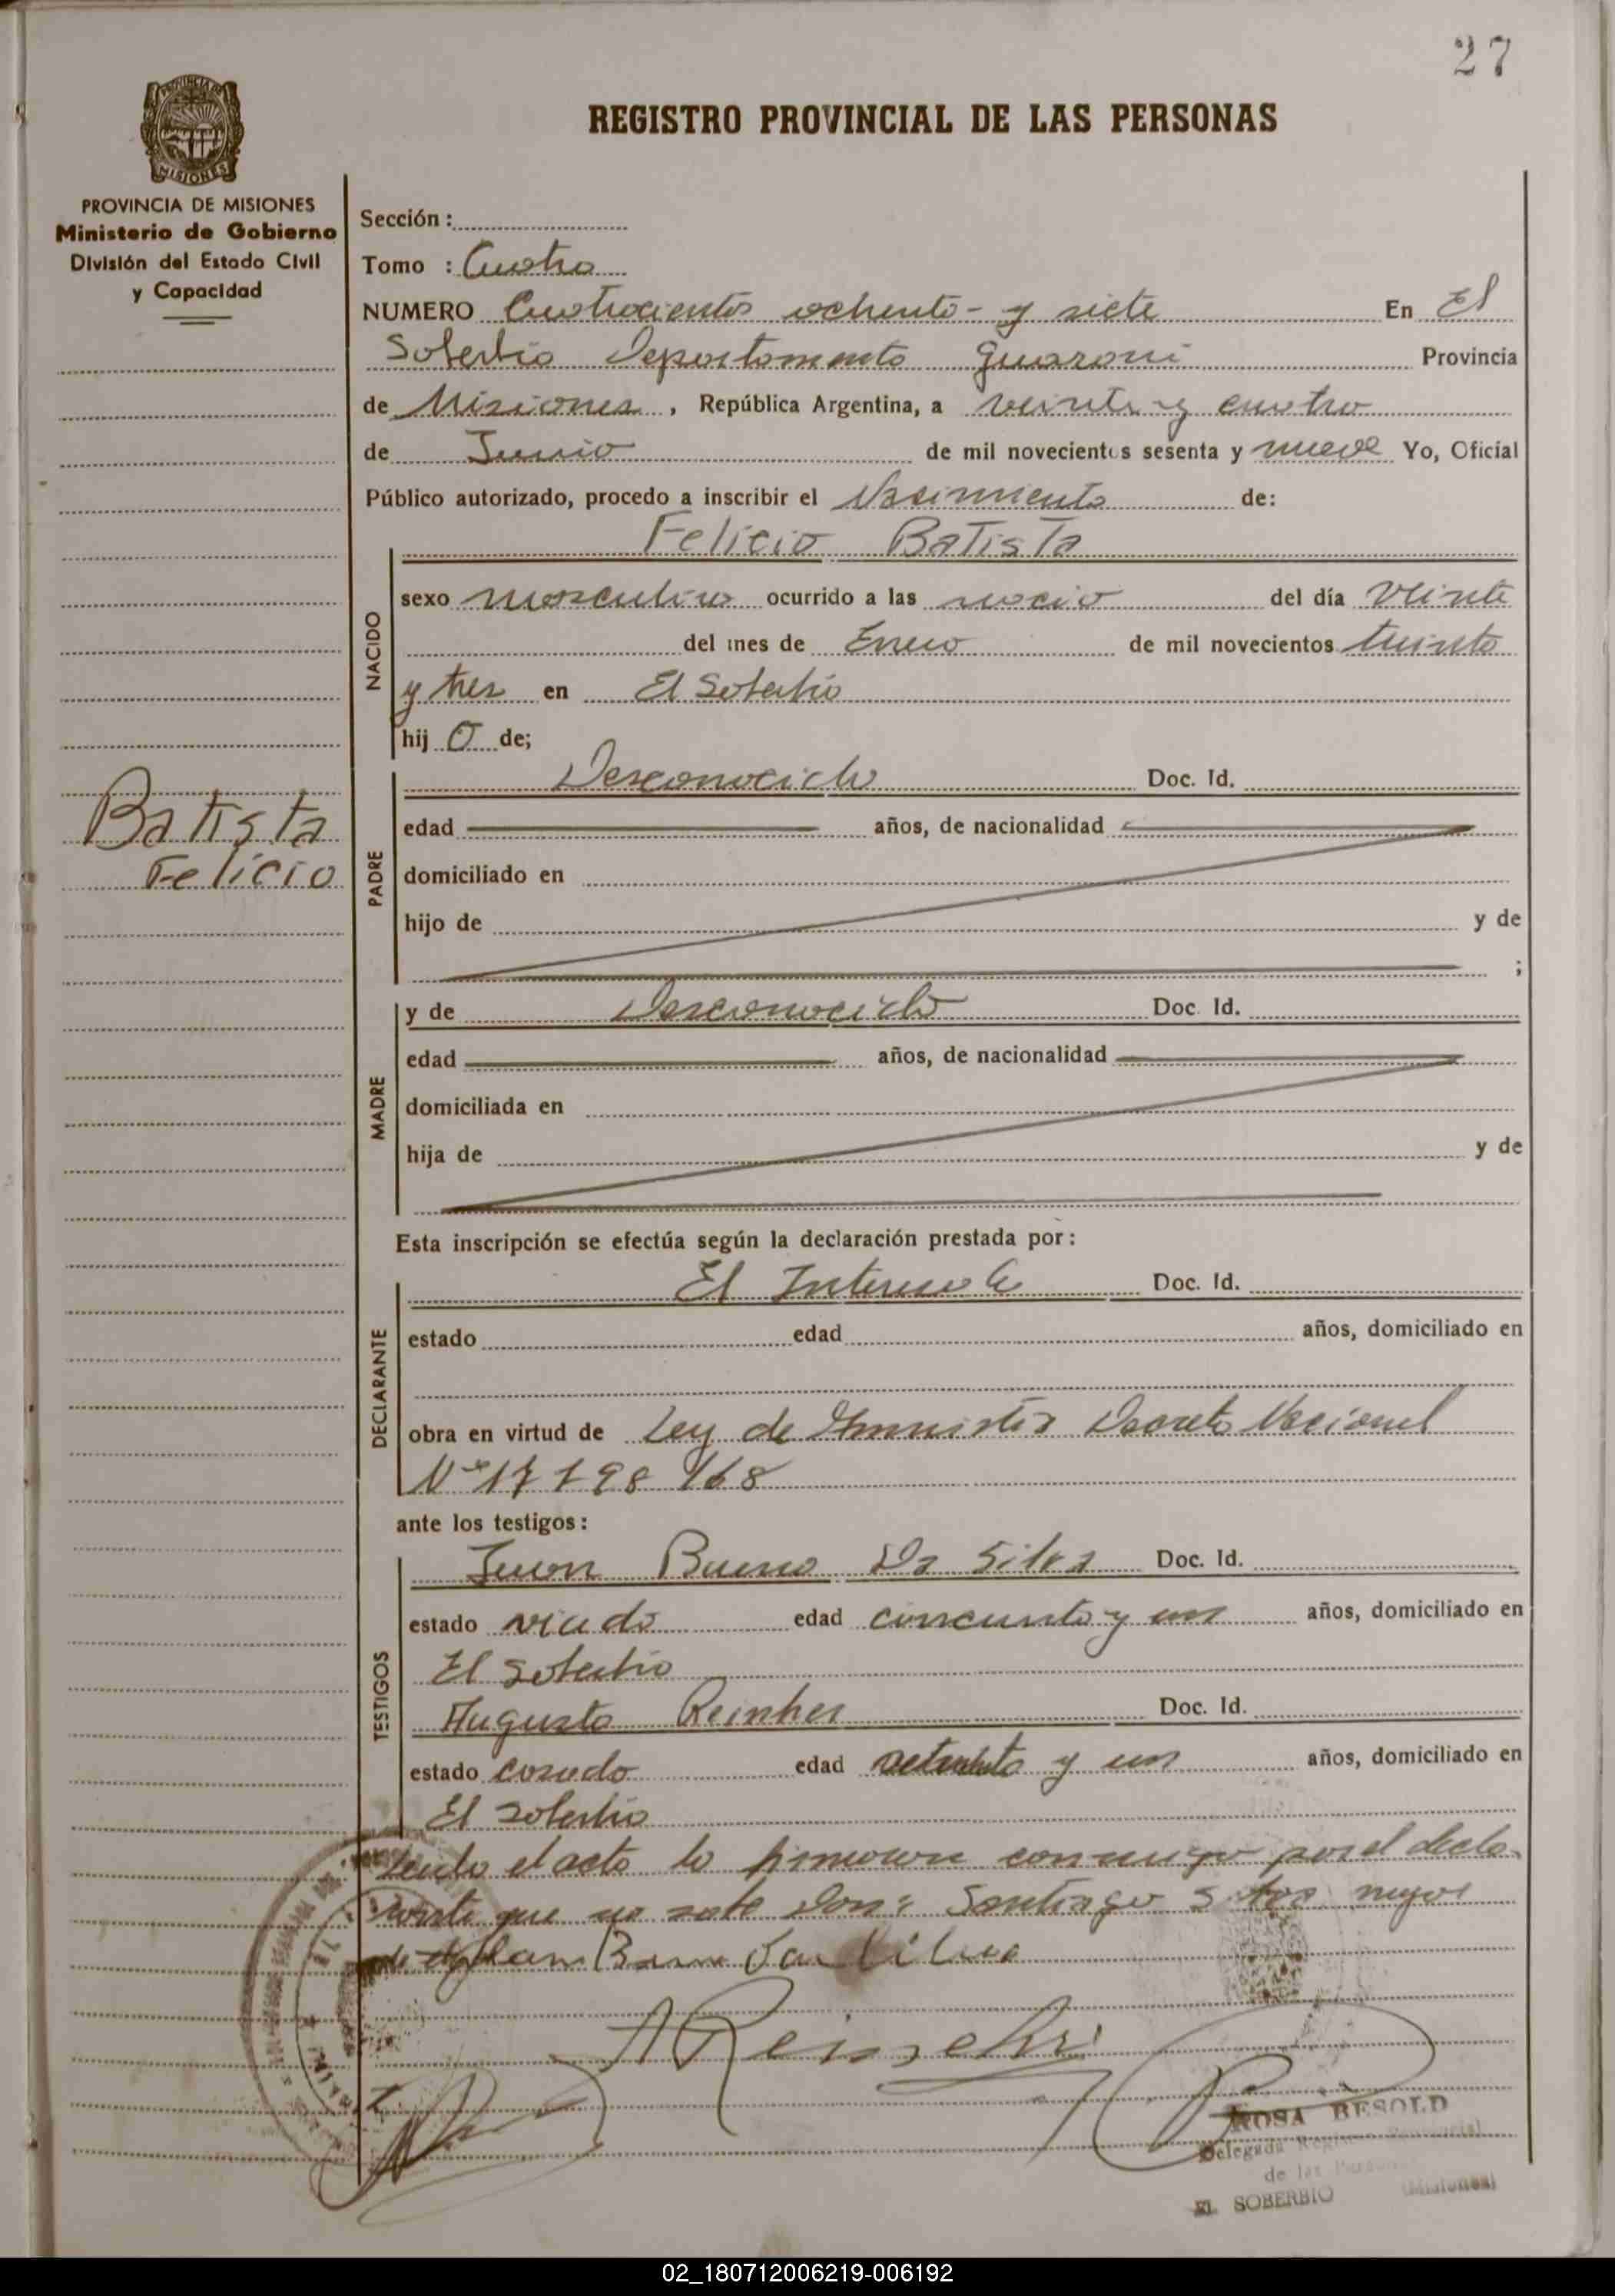 27
REGISTRO PROVINCIAL DE LAS PERSONAS
PROVINCIA DE
MISIONES
PROVINCIA DE MISIONES
Ministerio de Gobierno
División del Estado Civil
y Capacidad
Sección :
Tomo : Cuatro
NUMERO Cuatrocientos ochenta - y siete En El
Soberbio Departamento Guarani Provincia
de Misiones, República Argentina, a veinte y cuatro
de Junio de mil novecientos sesenta y nueve Yo, Oficial
Público autorizado, procedo a inscribir el Nacimiento de:
Felicio Batista
NACIDO
sexo masculino ocurrido a las del día Veinte
del mes de Enero de mil novecientos treinta
y tres en El Soberbio
hij o de;
Batista
Felicio
PADRE
Desconocido Doc. Id.
edad años, de nacionalidad
domiciliado en
hijo de y de
;
MADRE
y de Desconocido Doc. Id.
edad años, de nacionalidad
domiciliada en
hija de y de
Esta inscripción se efectúa según la declaración prestada por :
DECLARANTE
El Doc. Id.
estado edad años, domiciliado en
obra en virtud de Ley de Decreto Nacional
Nº 17198/68
ante los testigos :
TESTIGOS
Juan Bueno Da Silva Doc. Id.
estado viudo edad cincuenta y un años, domiciliado en
El Soberbio
Augusto Reinher Doc. Id.
estado casado edad y un años, domiciliado en
El Soberbio
el acta lo conmigo por el decla-
rante que no sabe Don: Santiago
ROSA BESOLD
Delegada Registro Provincial
de las Personas
EL SOBERBIO (Misiones)
02_180712006219-006192